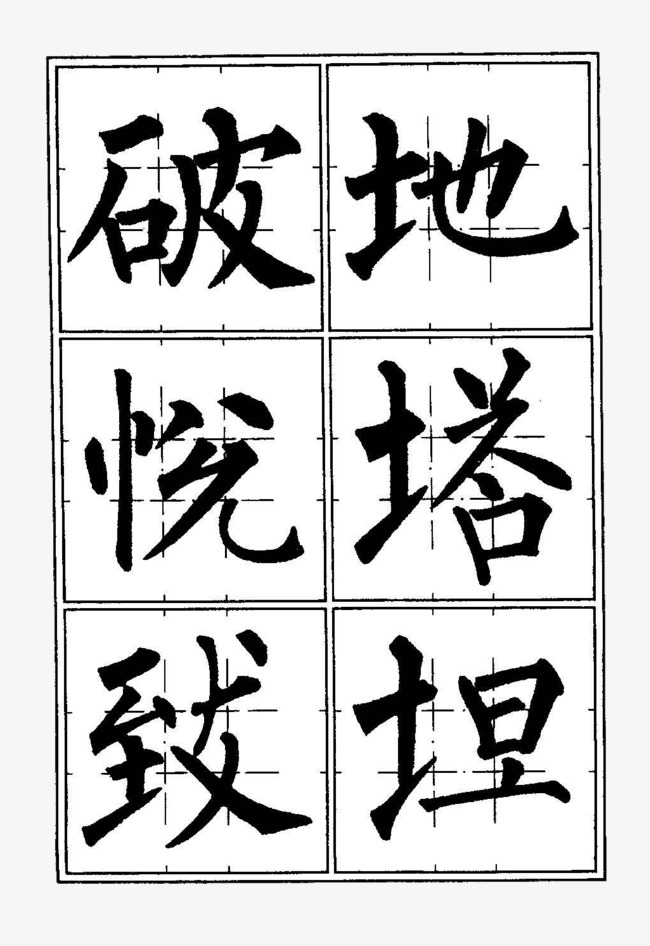 地塔坦
破悦致